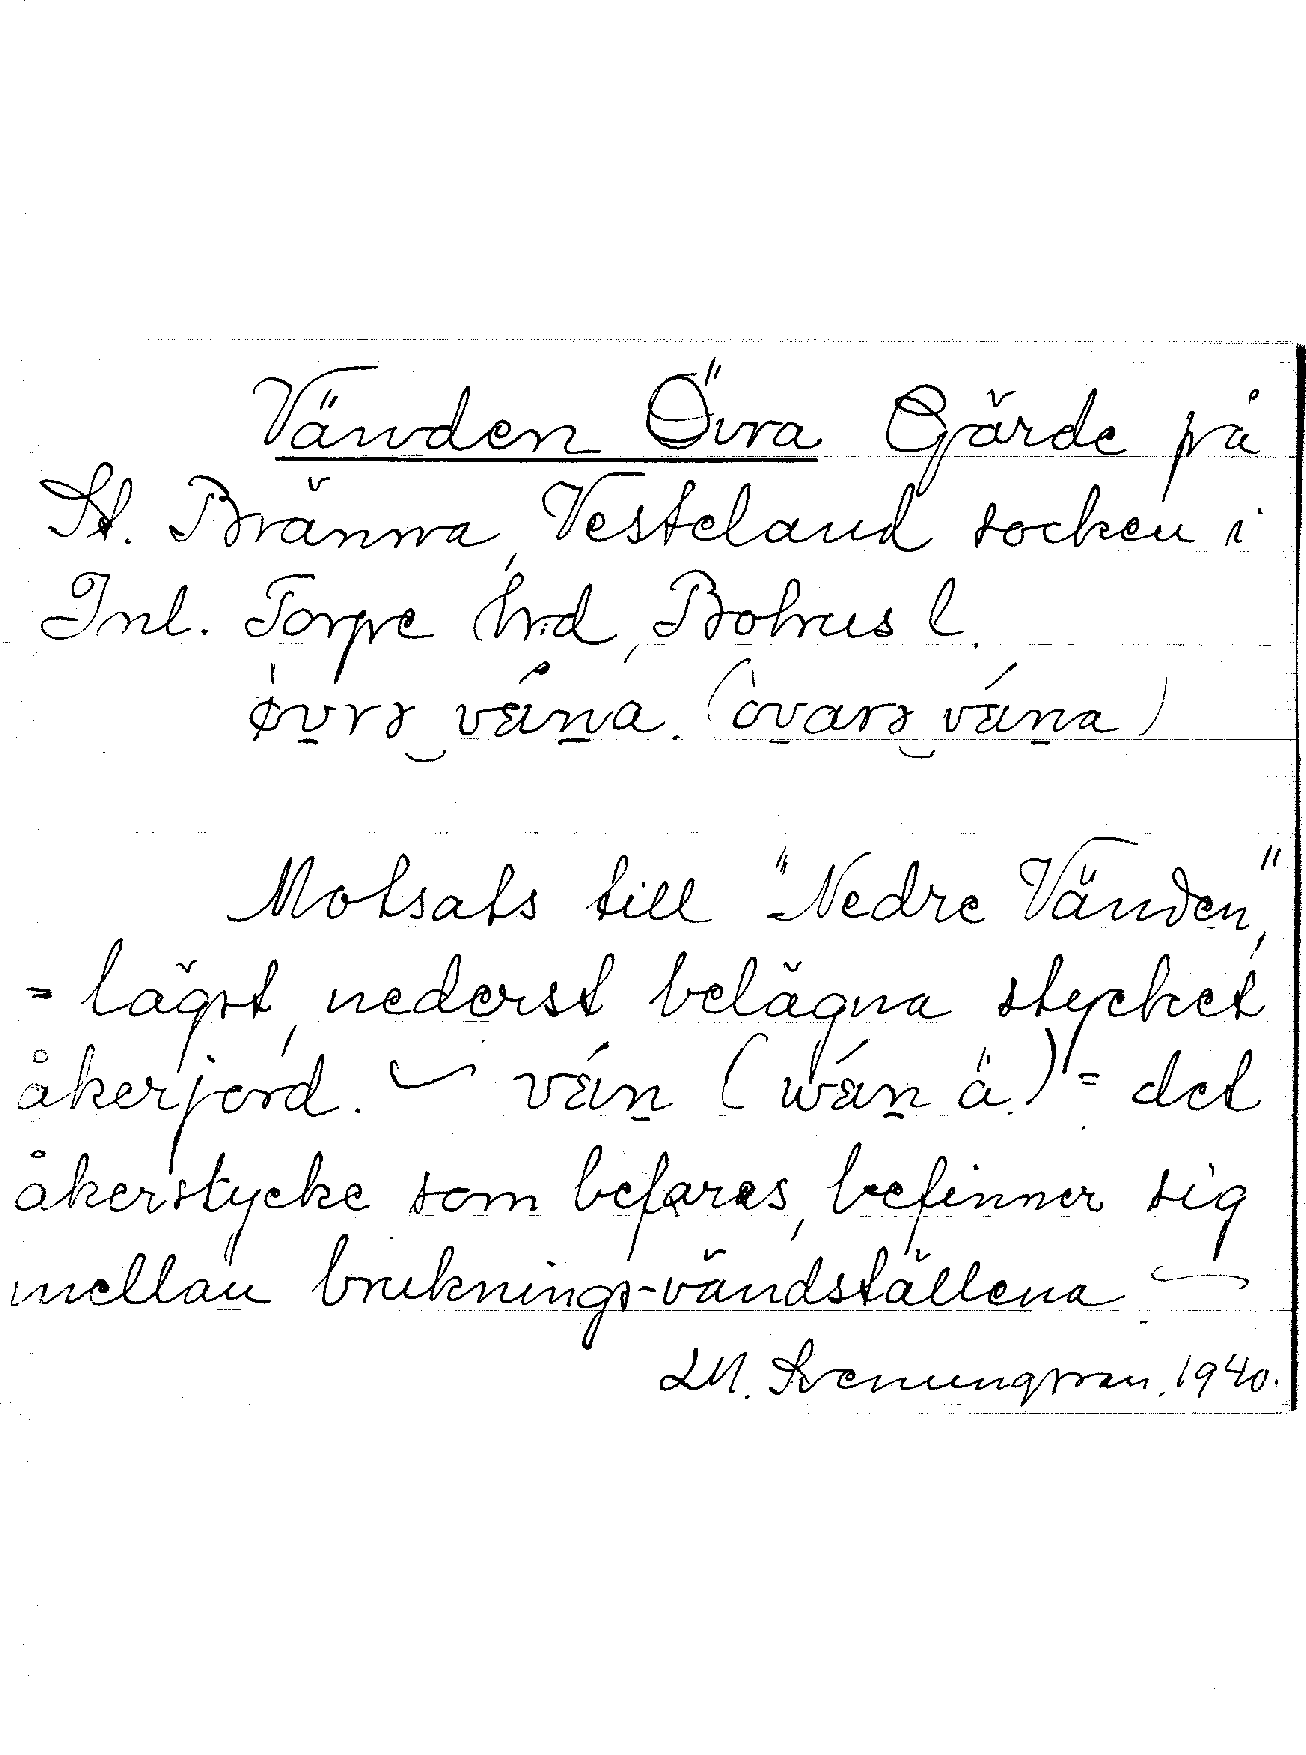 Vänden Övra Gärde på
St. Bränna, Vesteland socken i
Inl. Torpe hrd, Bohus l.
øvrə vána. (òvarə vána)
Motsats till "Nedre Vänden",
= lägst, nederst belägna stycket
åkerjord. — ván (wán ä) = det
åkerstycke som befares, befinner sig
mellan bruknings-vändställena —
LM. Svenungsson. 1940.